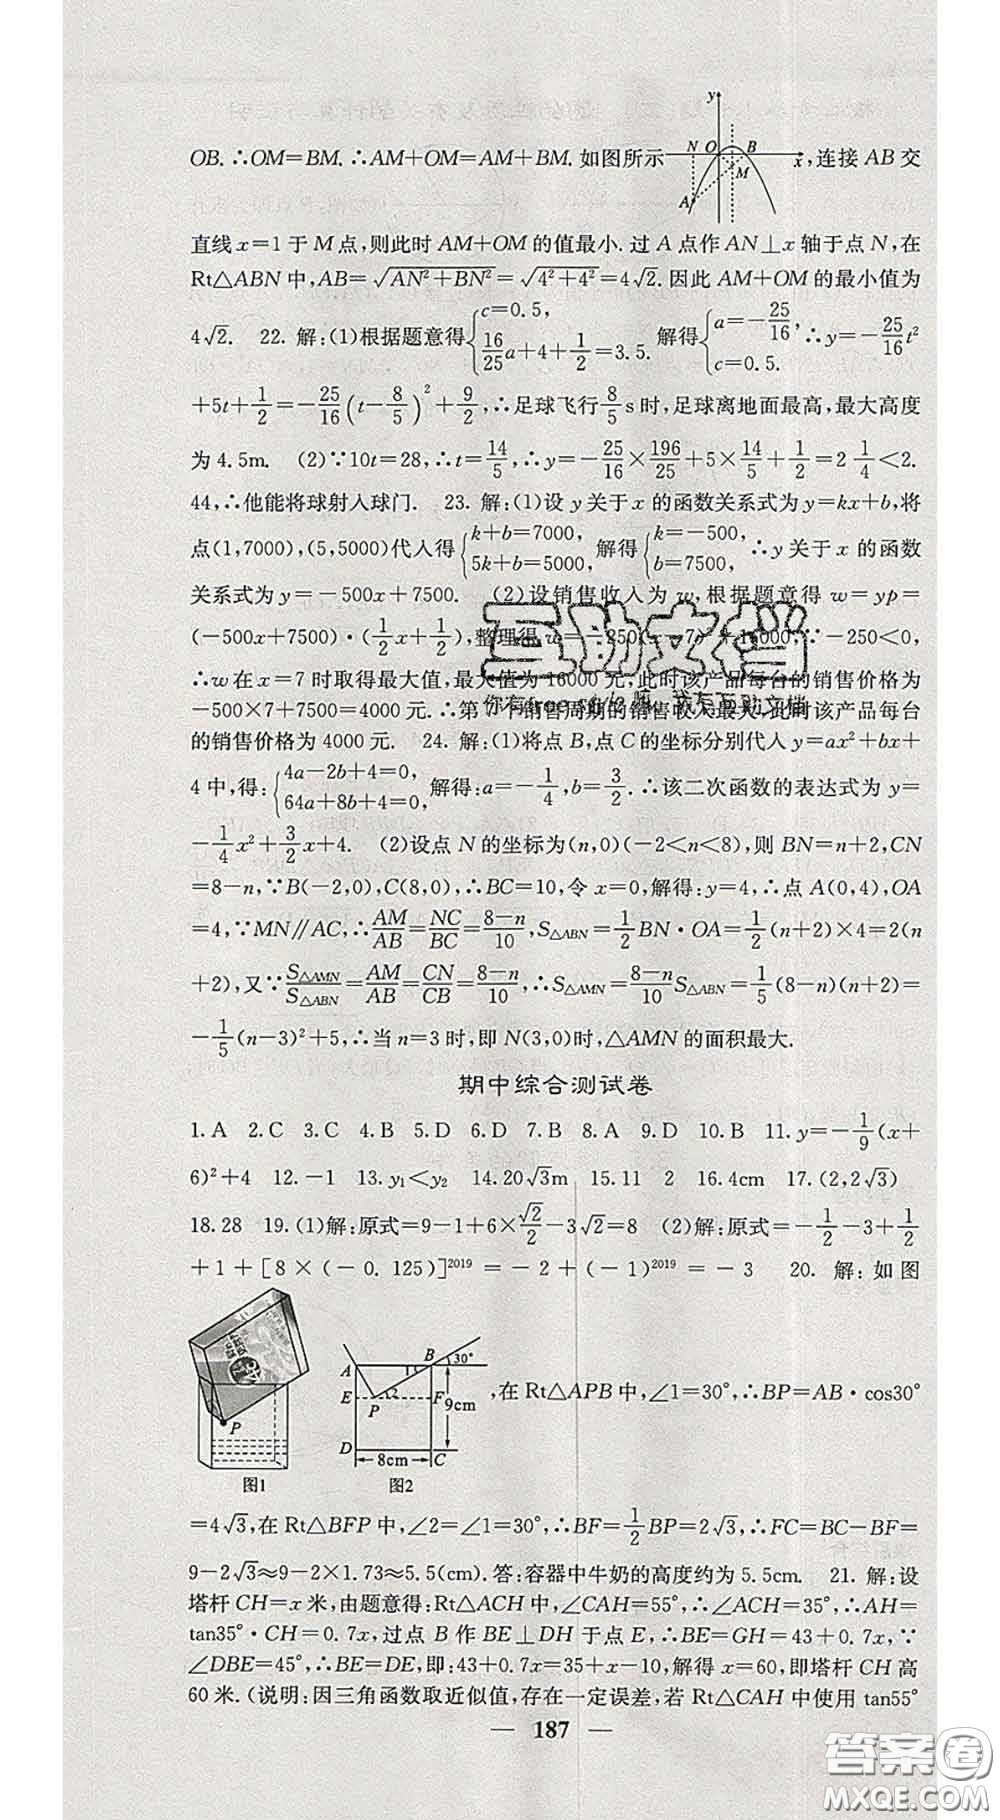 OB.∴OM=BM.∴AM+OM=AM+BM.如图所示 ,连接 AB 交
y
N O B x
M
A
直线 x=1 于 M 点,则此时 AM+OM 的值最小.过 A 点作 AN⊥x 轴于点 N,在
Rt△ABN 中,AB=√(AN²+BN²)=√(4²+4²)=4√2.因此 AM+OM 的最小值为
4√2. 22. 解:(1)根据题意得{c=0.5, 16/25a+4+1/2=3.5. 解得{a=-25/16, c=0.5. ∴y=-25/16t²
+5t+1/2=-25/16(t-8/5)²+9/2,∴足球飞行8/5s时,足球离地面最高,最大高度
为 4.5m. (2)∵10t=28,∴t=14/5,∴y=-25/16×196/25+5×14/5+1/2=2 1/4<2.
44,∴他能将球射入球门. 23. 解:(1)设 y 关于 x 的函数关系式为 y=kx+b,将
点(1,7000),(5,5000)代入得{k+b=7000, 5k+b=5000, 解得{k=-500, b=7500, ∴y 关于 x 的函数
关系式为 y=-500x+7500. (2)设销售收入为 w,根据题意得 w=yp=
(-500x+7500)·(1/2x+1/2),整理得 w=-250(x-7)²+16000,∵-250<0,
∴w 在 x=7 时取得最大值,最大值为 16000 元,此时该产品每台的销售价格为
-500×7+7500=4000 元.∴第 7 个销售周期的销售收入最大,此时该产品每台
的销售价格为 4000 元. 24. 解:(1)将点 B,点 C 的坐标分别代入 y=ax²+bx+
4 中,得:{4a-2b+4=0, 64a+8b+4=0, 解得:a=-1/4,b=3/2.∴该二次函数的表达式为 y=
-1/4x²+3/2x+4. (2)设点 N 的坐标为(n,0)(-2<n<8),则 BN=n+2,CN
=8-n,∵B(-2,0),C(8,0),∴BC=10,令 x=0,解得:y=4,∴点 A(0,4),OA
=4,∵MN∥AC,∴AM/AB=NC/BC=(8-n)/10,S△ABN=1/2BN·OA=1/2(n+2)×4=2(n
+2),又∵S△AMN/S△ABN=AM/AB=CN/CB=(8-n)/10,∴S△AMN=(8-n)/10S△ABN=1/5(8-n)(n+2)=
-1/5(n-3)²+5,∴当 n=3 时,即 N(3,0)时,△AMN 的面积最大.
期中综合测试卷
1.A 2.C 3.C 4.B 5.D 6.D 7.B 8.A 9.D 10.B 11.y=-1/9(x+
6)²+4 12.-1 13.y₁<y₂ 14.20√3m 15.11 2 16.4cm 17.(2,2√3)
18.28 19.(1)解:原式=9-1+6×√2/2-3√2=8 (2)解:原式=-1/2-3+1/2
+1+[8×(-0.125)]²⁰¹⁹=-2+(-1)²⁰¹⁹=-3 20. 解:如图
P
图1
A B 30°
1
E P 2 F 9cm
D 8cm C
图2
,在 Rt△APB 中,∠1=30°,∴BP=AB·cos30°
=4√3,在 Rt△BFP 中,∠2=∠1=30°,∴BF=1/2BP=2√3,∴FC=BC-BF=
9-2√3≈9-2×1.73≈5.5(cm).答:容器中牛奶的高度约为 5.5cm. 21. 解:设
塔杆 CH=x 米,由题意得:Rt△ACH 中,∠CAH=55°,∴∠ACH=35°,∴AH=
tan35°·CH=0.7x,过点 B 作 BE⊥DH 于点 E,∴BE=GH=43+0.7x,∵
∠DBE=45°,∴BE=DE,即:43+0.7x=35+x-10,解得 x=60,即塔杆 CH 高
60 米.(说明:因三角函数取近似值,存在一定误差,若 Rt△CAH 中使用 tan55°
— 187 —
互助文档
答案圈
MXQE.COM